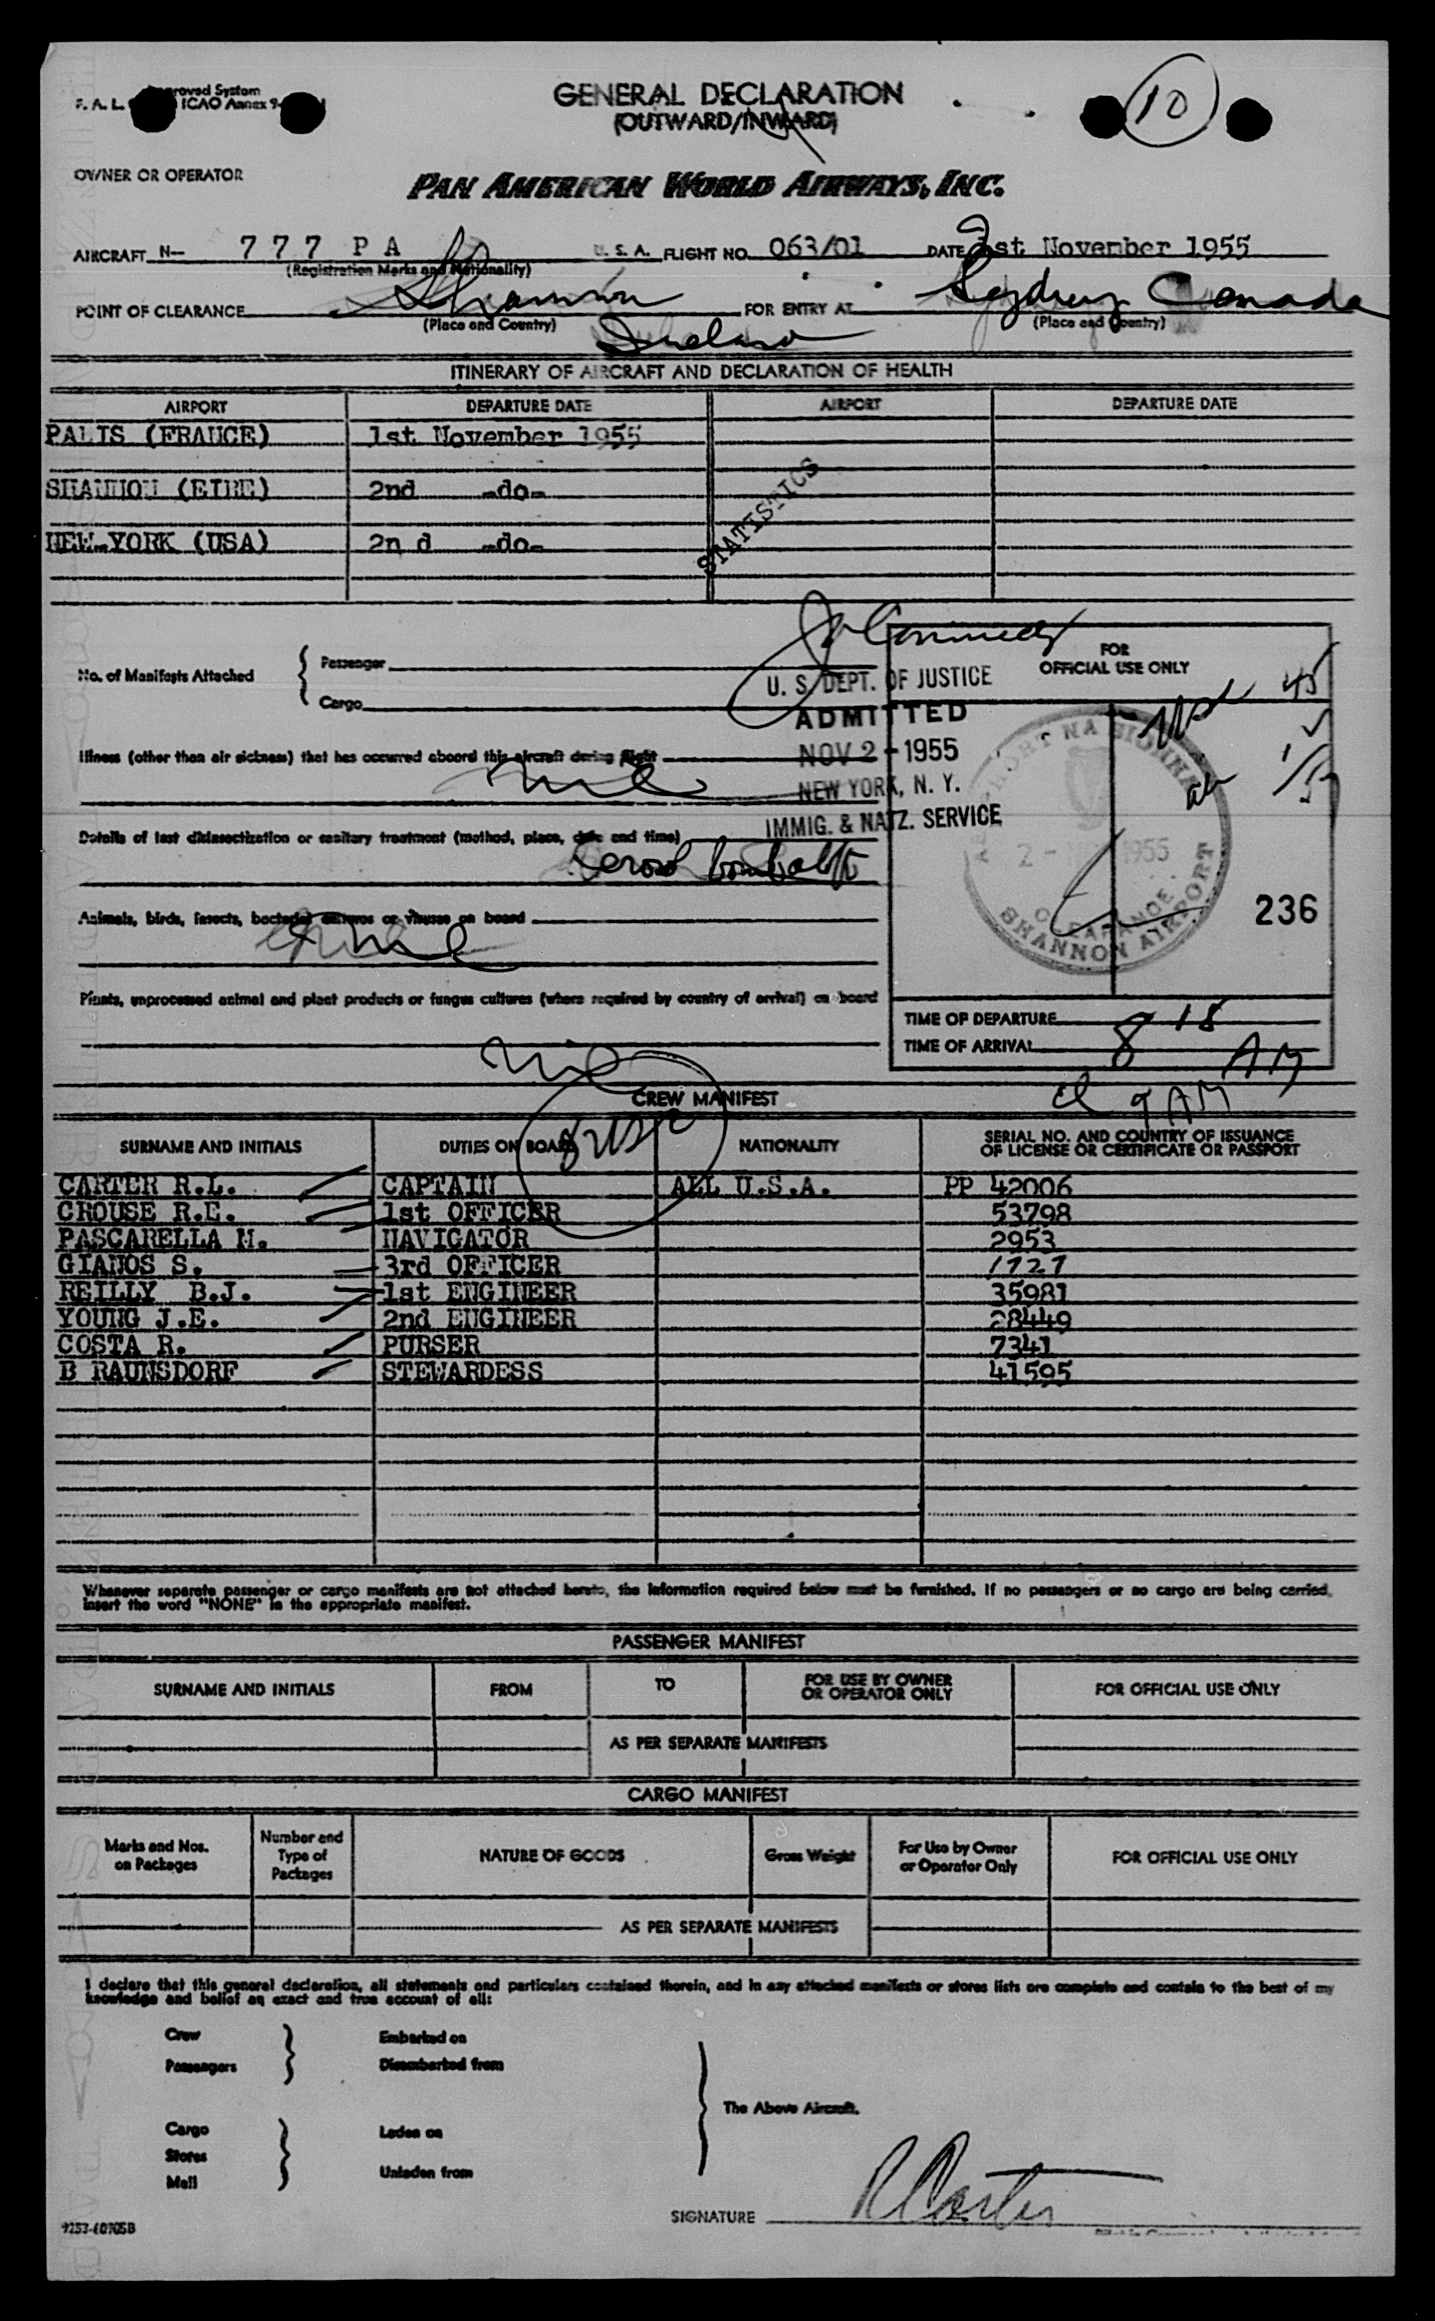 GENERAL DECLARATION
(OUTWARD/INWARD)
10
F. A. L. ICAO Annex 9
OWNER OR OPERATOR
PAN AMERICAN WORLD AIRWAYS, INC.
AIRCRAFT N— 777 P A U. S. A. FLIGHT NO. 063/01 DATE 1st November 1955
(Registration Marks and Nationality)
POINT OF CLEARANCE Shannon FOR ENTRY AT Sydney Canada
(Place and Country) (Place and Country)
Ireland
ITINERARY OF AIRCRAFT AND DECLARATION OF HEALTH
AIRPORT DEPARTURE DATE AIRPORT DEPARTURE DATE
PALIS (FRANCE) 1st November 1955
SHANNON (EIRE) 2nd -do-
NEW-YORK (USA) 2n d -do-
STATISTICS
No. of Manifests Attached
Passenger
Cargo
FOR
OFFICIAL USE ONLY
U. S. DEPT. OF JUSTICE
ADMITTED
NOV 2 - 1955
NEW YORK, N. Y.
IMMIG. & NATZ. SERVICE
45
Illness (other than air sickness) that has occurred aboard this aircraft during flight
nil
Details of last disinsectization or sanitary treatment (method, place, date and time)
Aerosol bomb
2 - 1955
CLEARANCE
SHANNON AIRPORT
236
Animals, birds, insects, bacterial cultures or viruses on board
nil
Plants, unprocessed animal and plant products or fungus cultures (where required by country of arrival) on board
nil
TIME OF DEPARTURE 8 15
TIME OF ARRIVAL AM
9 AM
CREW MANIFEST
8 USA
SURNAME AND INITIALS DUTIES ON BOARD NATIONALITY SERIAL NO. AND COUNTRY OF ISSUANCE
OF LICENSE OR CERTIFICATE OR PASSPORT
CARTER R.L. CAPTAIN ALL U.S.A. PP 42006
CROUSE R.E. 1st OFFICER 53798
PASCARELLA M. NAVIGATOR 2953
GIANOS S. 3rd OFFICER 1727
REILLY B.J. 1st ENGINEER 35981
YOUNG J.E. 2nd ENGINEER 28449
COSTA R. PURSER 7341
B RAUNSDORF STEWARDESS 41595
Whenever separate passenger or cargo manifests are not attached hereto, the information required below must be furnished. If no passengers or no cargo are being carried,
insert the word "NONE" in the appropriate manifest.
PASSENGER MANIFEST
SURNAME AND INITIALS FROM TO FOR USE BY OWNER
OR OPERATOR ONLY FOR OFFICIAL USE ONLY
AS PER SEPARATE MANIFESTS
CARGO MANIFEST
Marks and Nos.
on Packages Number and
Type of
Packages NATURE OF GOODS Gross Weight For Use by Owner
or Operator Only FOR OFFICIAL USE ONLY
AS PER SEPARATE MANIFESTS
I declare that this general declaration, all statements and particulars contained therein, and in any attached manifests or stores lists are complete and contain to the best of my
knowledge and belief an exact and true account of all:
Crew Embarked on
Passengers Disembarked from
The Above Aircraft.
Cargo Laden on
Stores
Mail Unladen from
SIGNATURE R Carter